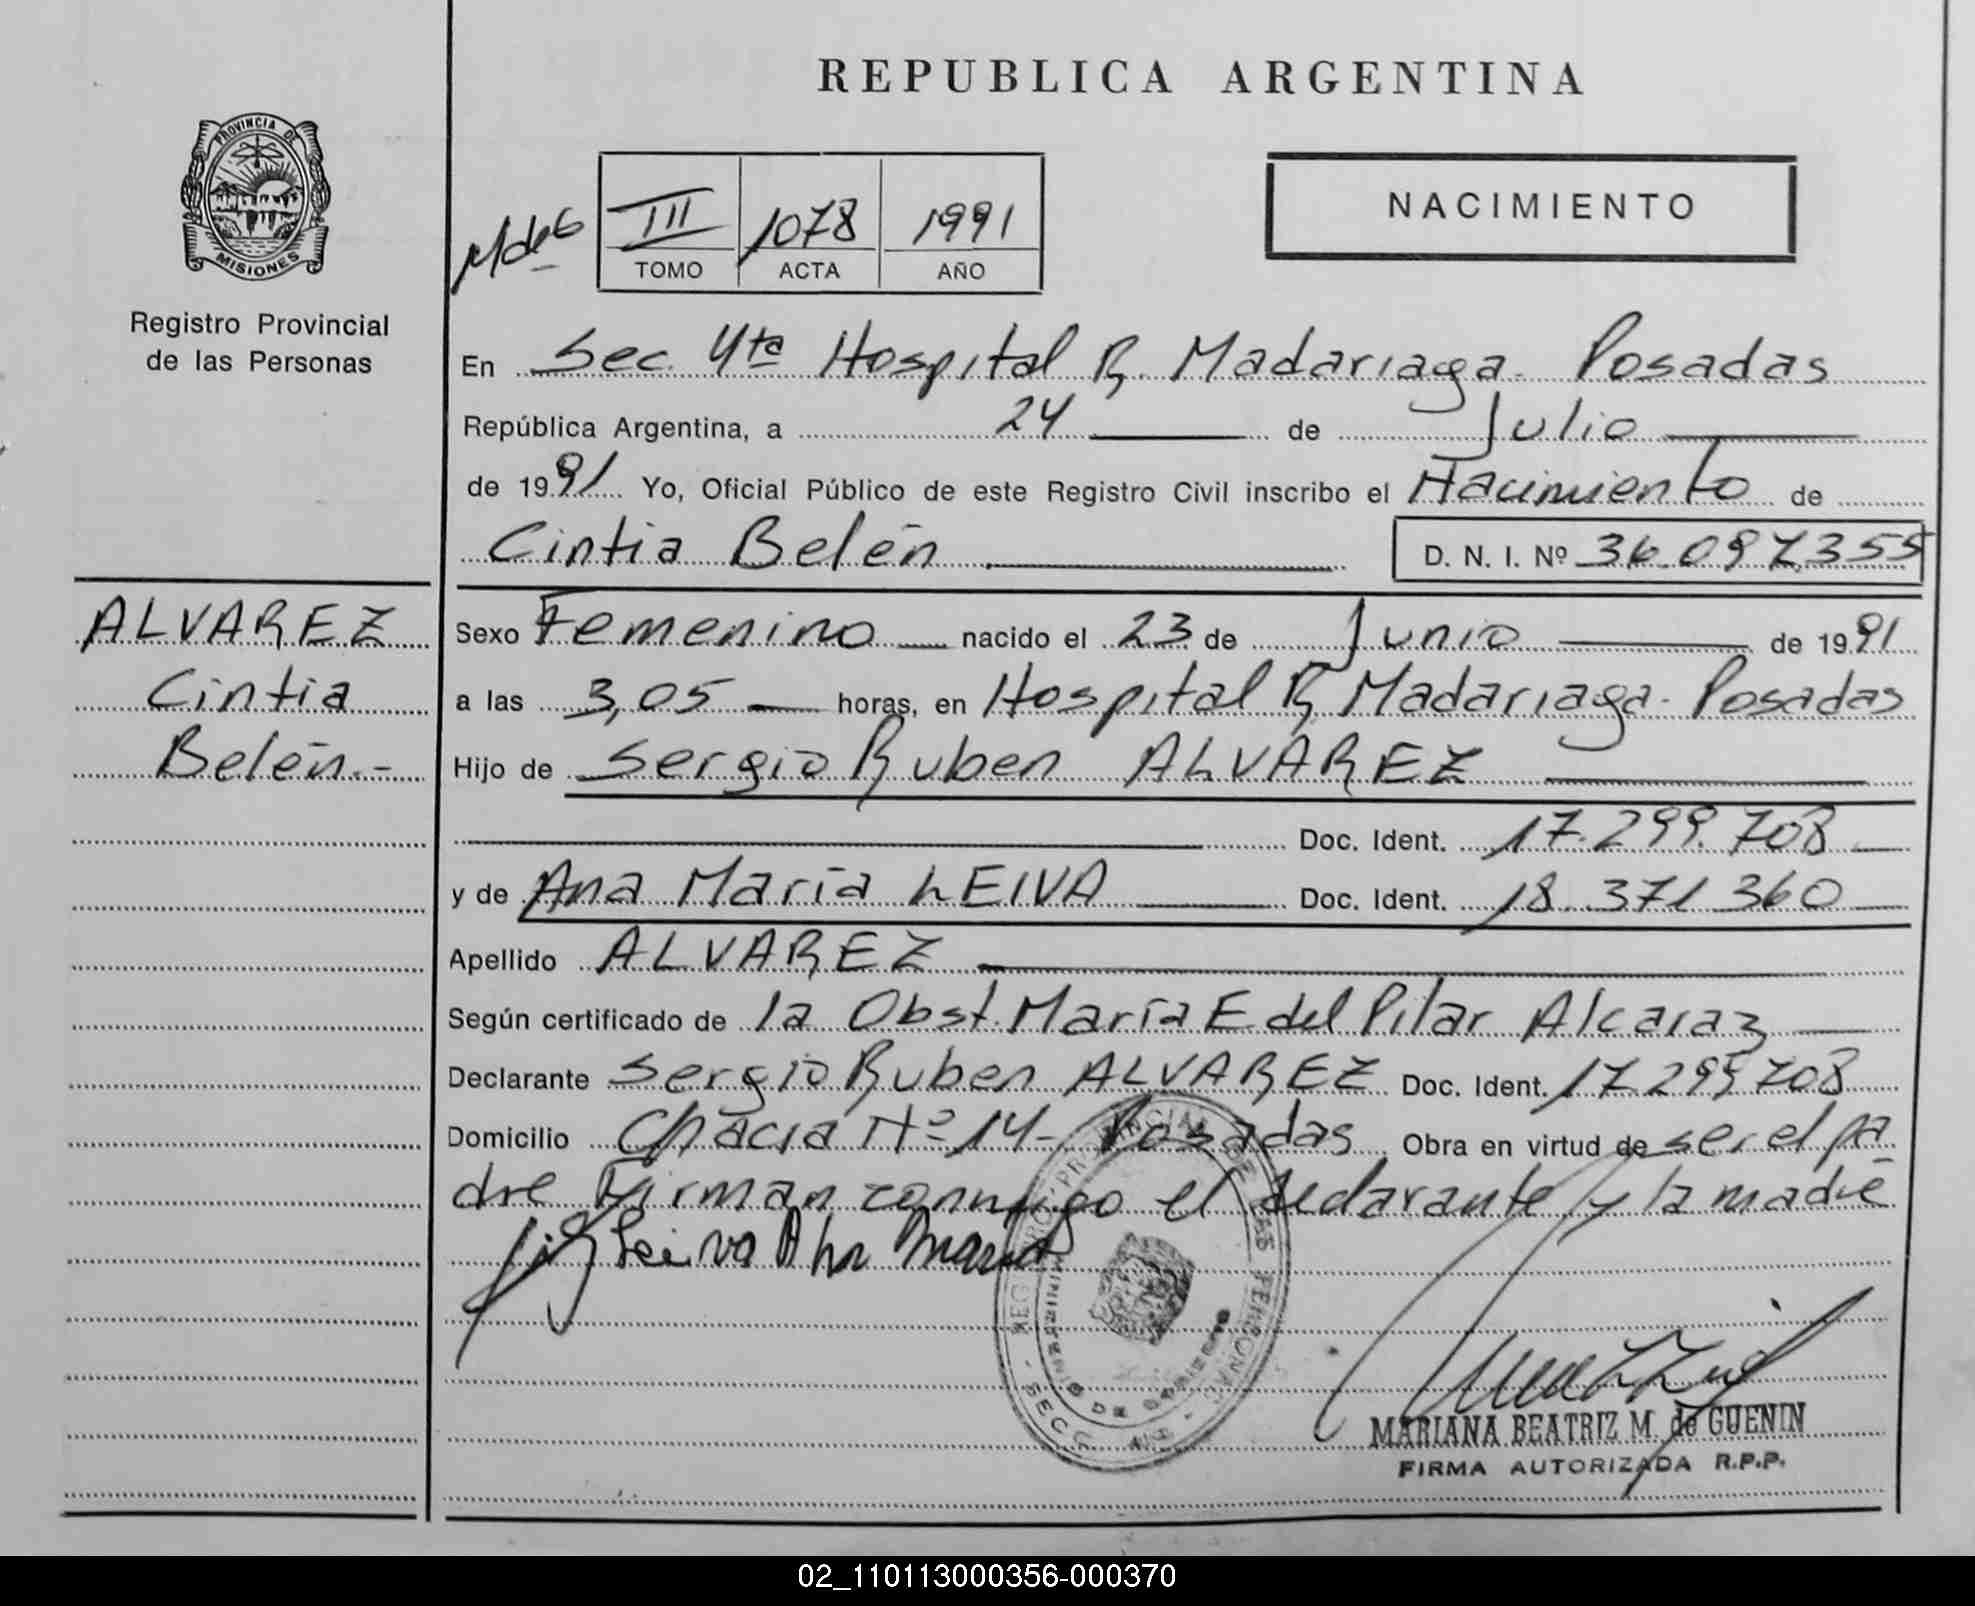 REPUBLICA ARGENTINA
PROVINCIA DE
MISIONES
Registro Provincial
de las Personas
III 1078 1991
TOMO ACTA AÑO
NACIMIENTO
En Sec. 4ta Hospital R. Madariaga - Posadas
República Argentina, a 24 de Julio
de 1991 Yo, Oficial Público de este Registro Civil inscribo el Nacimiento de
Cintia Belén D. N. I. Nº 36.097.355
ALVAREZ
Cintia
Belén.-
Sexo Femenino nacido el 23 de Junio de 1991
a las 3,05 horas, en Hospital R. Madariaga - Posadas
Hijo de Sergio Ruben ALVAREZ
Doc. Ident. 17.299.708
y de Ana María LEIVA Doc. Ident. 18.371.360
Apellido ALVAREZ
Según certificado de la Obst. María E. del Pilar Alcaraz
Declarante Sergio Ruben ALVAREZ Doc. Ident. 17.299.708
Domicilio Chacra Nº 14 - Posadas Obra en virtud de ser el pa
dre Firman conmigo el declarante y la madre
Leiva Ana Maria
REGISTRO PROVINCIAL DE LAS PERSONAS
MINISTERIO DE GOBIERNO
MARIANA BEATRIZ M. de GUENIN
FIRMA AUTORIZADA R.P.P.
02_110113000356-000370